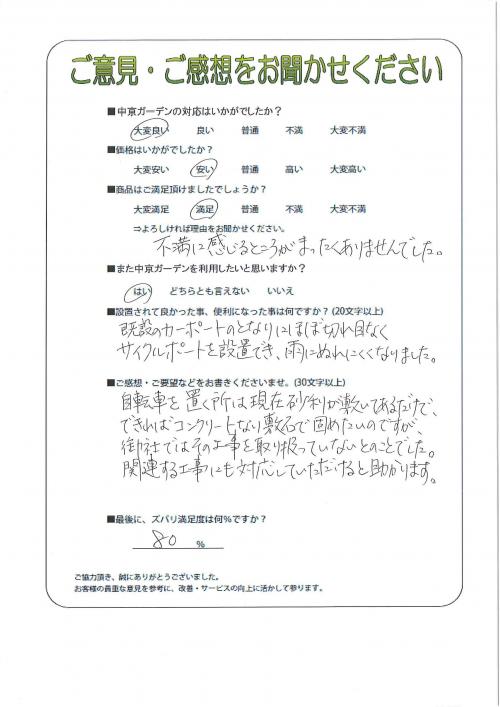 ご意見・ご感想をお聞かせください
■中京ガーデンの対応はいかがでしたか？
大変良い 良い 普通 不満 大変不満
■価格はいかがでしたか？
大変安い 安い 普通 高い 大変高い
■商品はご満足頂けましたでしょうか？
大変満足 満足 普通 不満 大変不満
⇒よろしければ理由をお聞かせください。
不満に感じるところがまったくありませんでした。
■また中京ガーデンを利用したいと思いますか？
はい どちらとも言えない いいえ
■設置されて良かった事、便利になった事は何ですか？(20文字以上)
既設のカーポートのとなりにほぼ切れ目なく
サイクルポートを設置でき、雨にぬれにくくなりました。
■ご感想・ご要望などをお書きくださいませ。(30文字以上)
自転車を置く所は現在砂利が敷いてあるだけで、
できればコンクリートなり敷石で固めたいのですが、
御社ではその工事を取り扱っていないとのことでした。
関連する工事にも対応していただけると助かります。
■最後に、ズバリ満足度は何％ですか？
80 ％
ご協力頂き、誠にありがとうございました。
お客様の貴重な意見を参考に、改善・サービスの向上に活かして参ります。